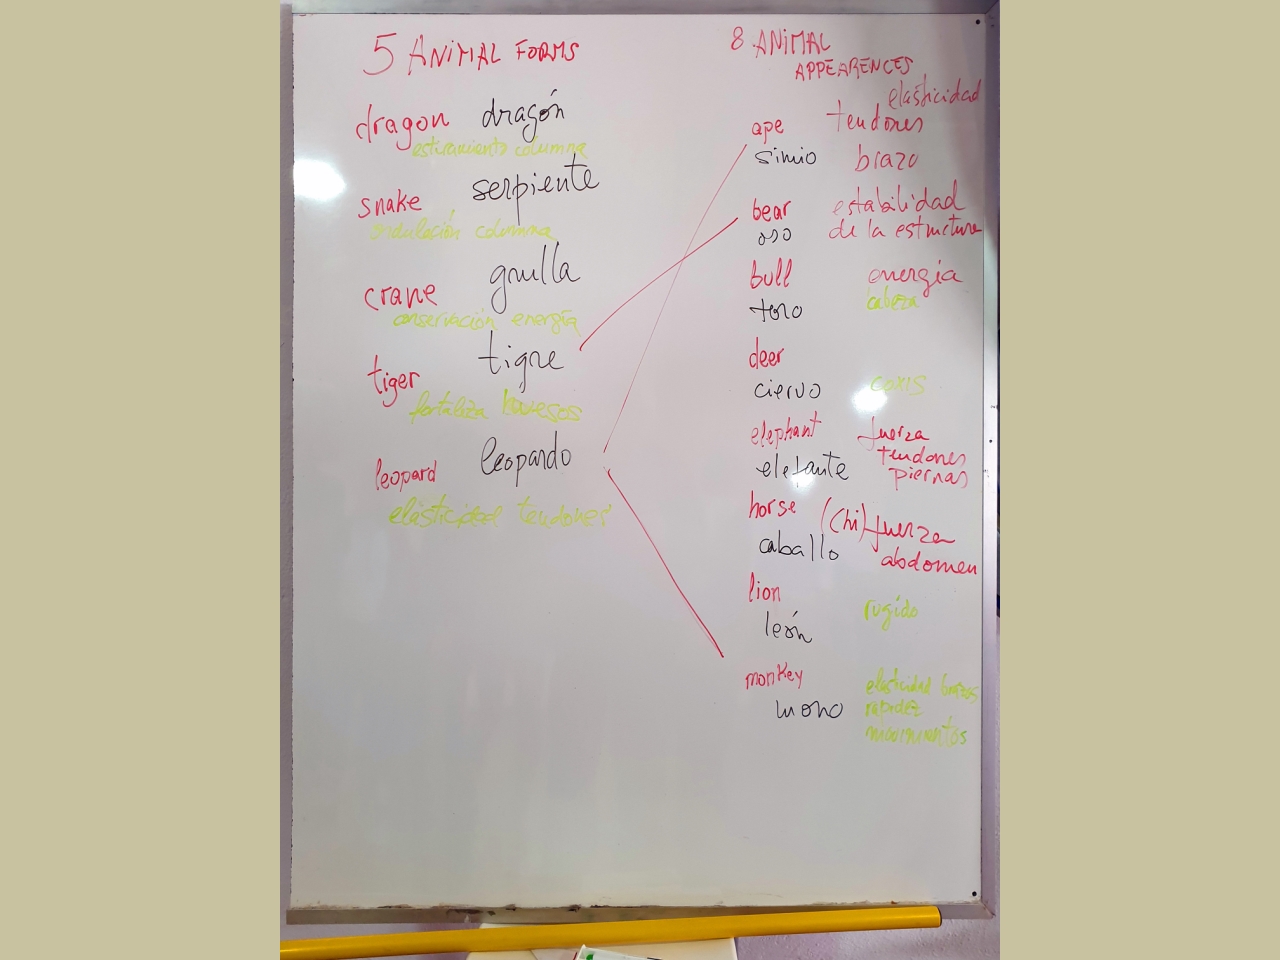 5 ANIMAL FORMS
dragon dragón
estiramiento columna
snake serpiente
ondulación columna
crane grulla
conservación energía
tiger tigre
fortaliza huesos
leopard leopardo
elásticidad tendones
8 ANIMAL
APPEARENCES
elasticidad
ape tendones
simio brazo
bear estabilidad
oso de la estructura
bull energía
toro cabeza
deer
ciervo coxis
elephant fuerza
tendones
elefante piernas
horse (Chi) fuerza
caballo abdomen
lion
rugido
león
monkey elasticidad brazos
mono rapidez
movimientos